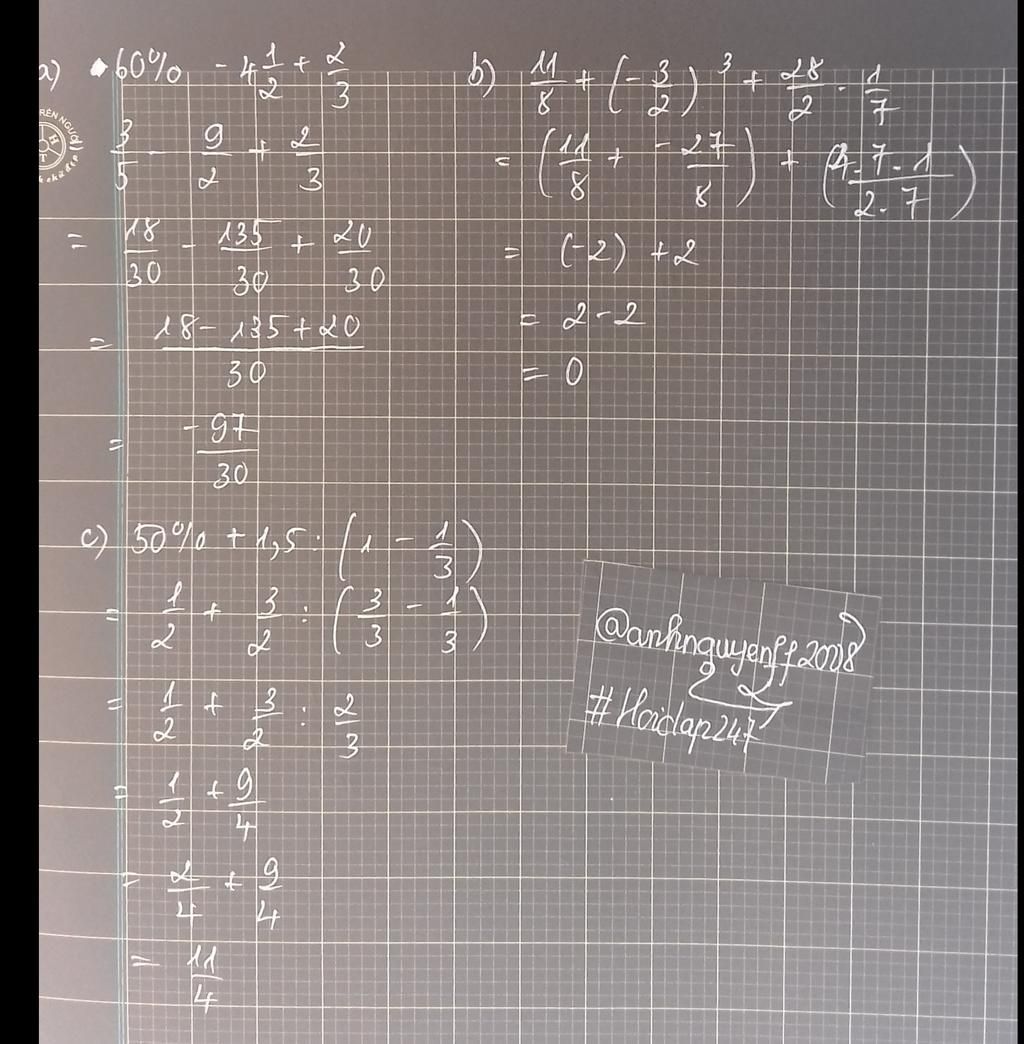 a) 60% - 4 1/2 + 2/3
3/5 - 9/2 + 2/3
= 18/30 - 135/30 + 20/30
= (18 - 135 + 20)/30
= -97/30
b) 11/8 + (-3/2)^3 + 28/2 . 1/7
= (11/8 + -27/8) + (4.7.1/2.7)
= (-2) + 2
= 2 - 2
= 0
c) 50% + 1,5 : (1 - 1/3)
= 1/2 + 3/2 : (3/3 - 1/3)
= 1/2 + 3/2 : 2/3
= 1/2 + 9/4
= 2/4 + 9/4
= 11/4
@anhnguyenff2008
#Hoidap247